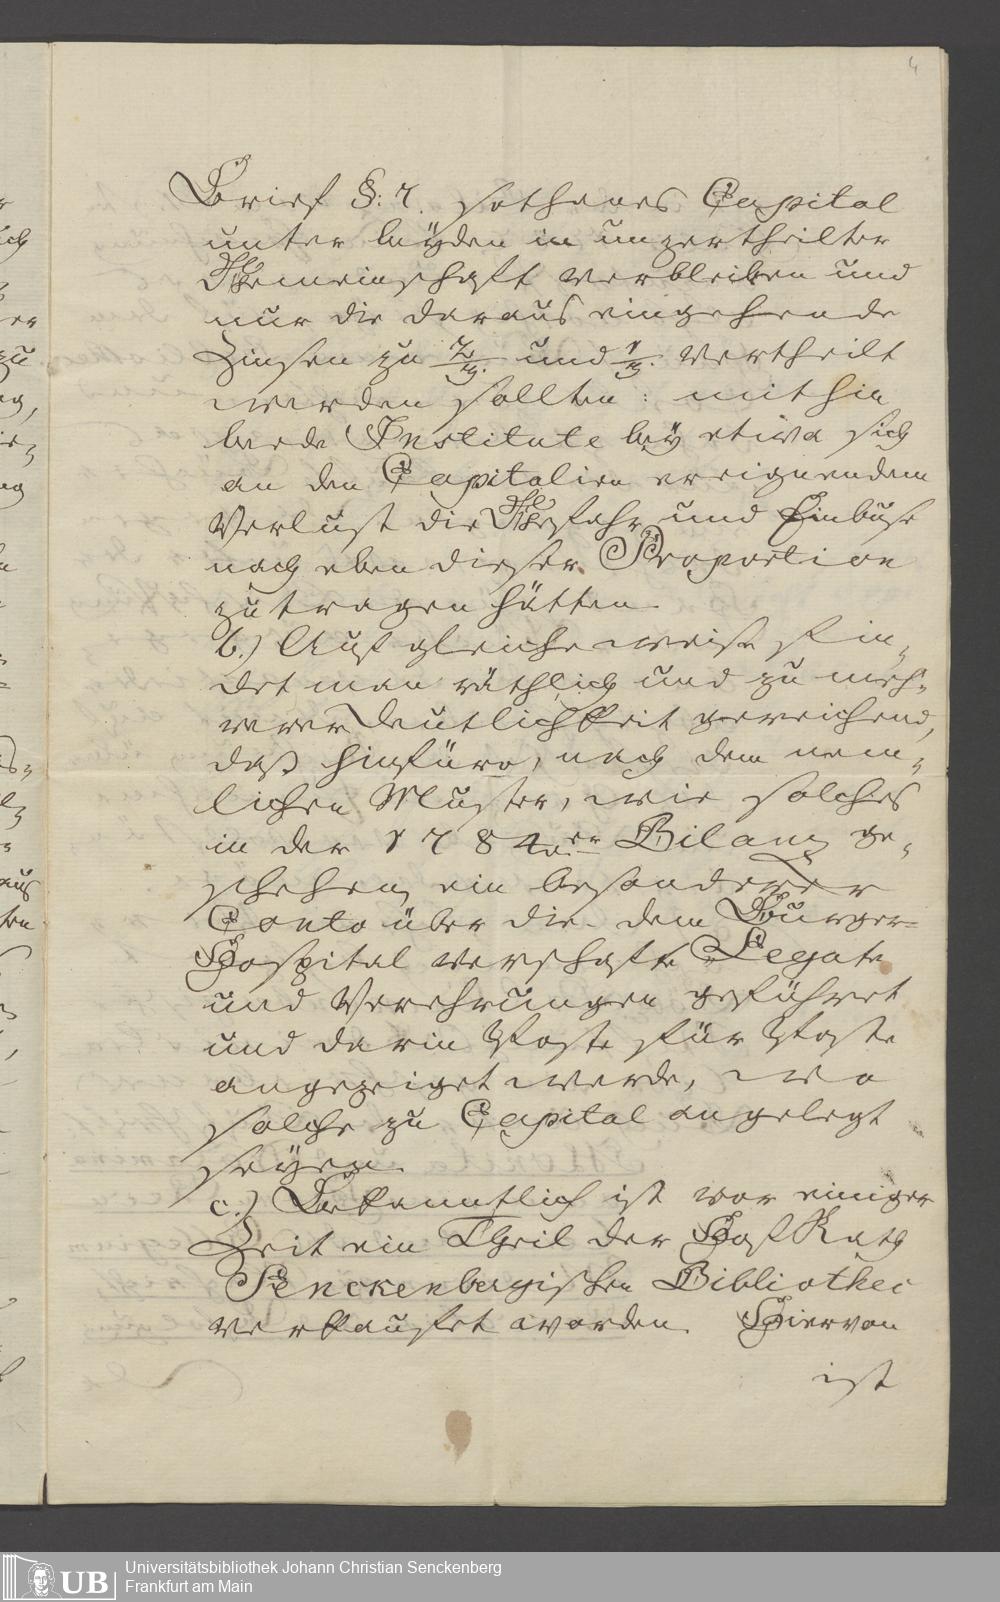 4
Brief §: 7. sothanes Capital
unter beyden in unzertheilter
Gemeinschafft verbleiben und
nur die daraus eingehende
Zinsen zu 2/3. und 1/3. vertheilt
werden sollten: mithin
beede Institute bey etwa sich
an den Capitalien ereignendem
Verlust die Gefahr und Einbuse
nach eben dieser Proportion
zu tragen hätten.
b.) Auf gleiche weise fin„
det man räthlich und zu meh„
rerer Deutlichkeit gereichend,
daß hinfüro, nach dem nem„
lichen Muster, wie solches
in der 1784er Bilanz ge„
schehen, ein besonderer
Conto über die dem Burger-
Hospital verschafte Legate
und Verehrungen geführet
und darin Poste für Poste
angezeiget werde, wo
solche zu Capital angelegt
seyen.
c.) Bekanntlich ist vor einiger
Zeit ein Theil der HofRath
Senckenbergischen Bibliothec
verkaufet worden. Hiervon
ist
UB
Universitätsbibliothek Johann Christian Senckenberg
Frankfurt am Main